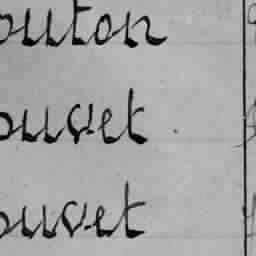 outon
ouvet
ouvet